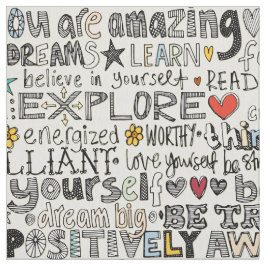 ou are amazing
DREAMS LEARN f
believe in yourself READ
EXPLORE c
energized WORTHY thi
LLIANT love yourself be st
yourself b
dream big BE TR
POSITIVELY AW